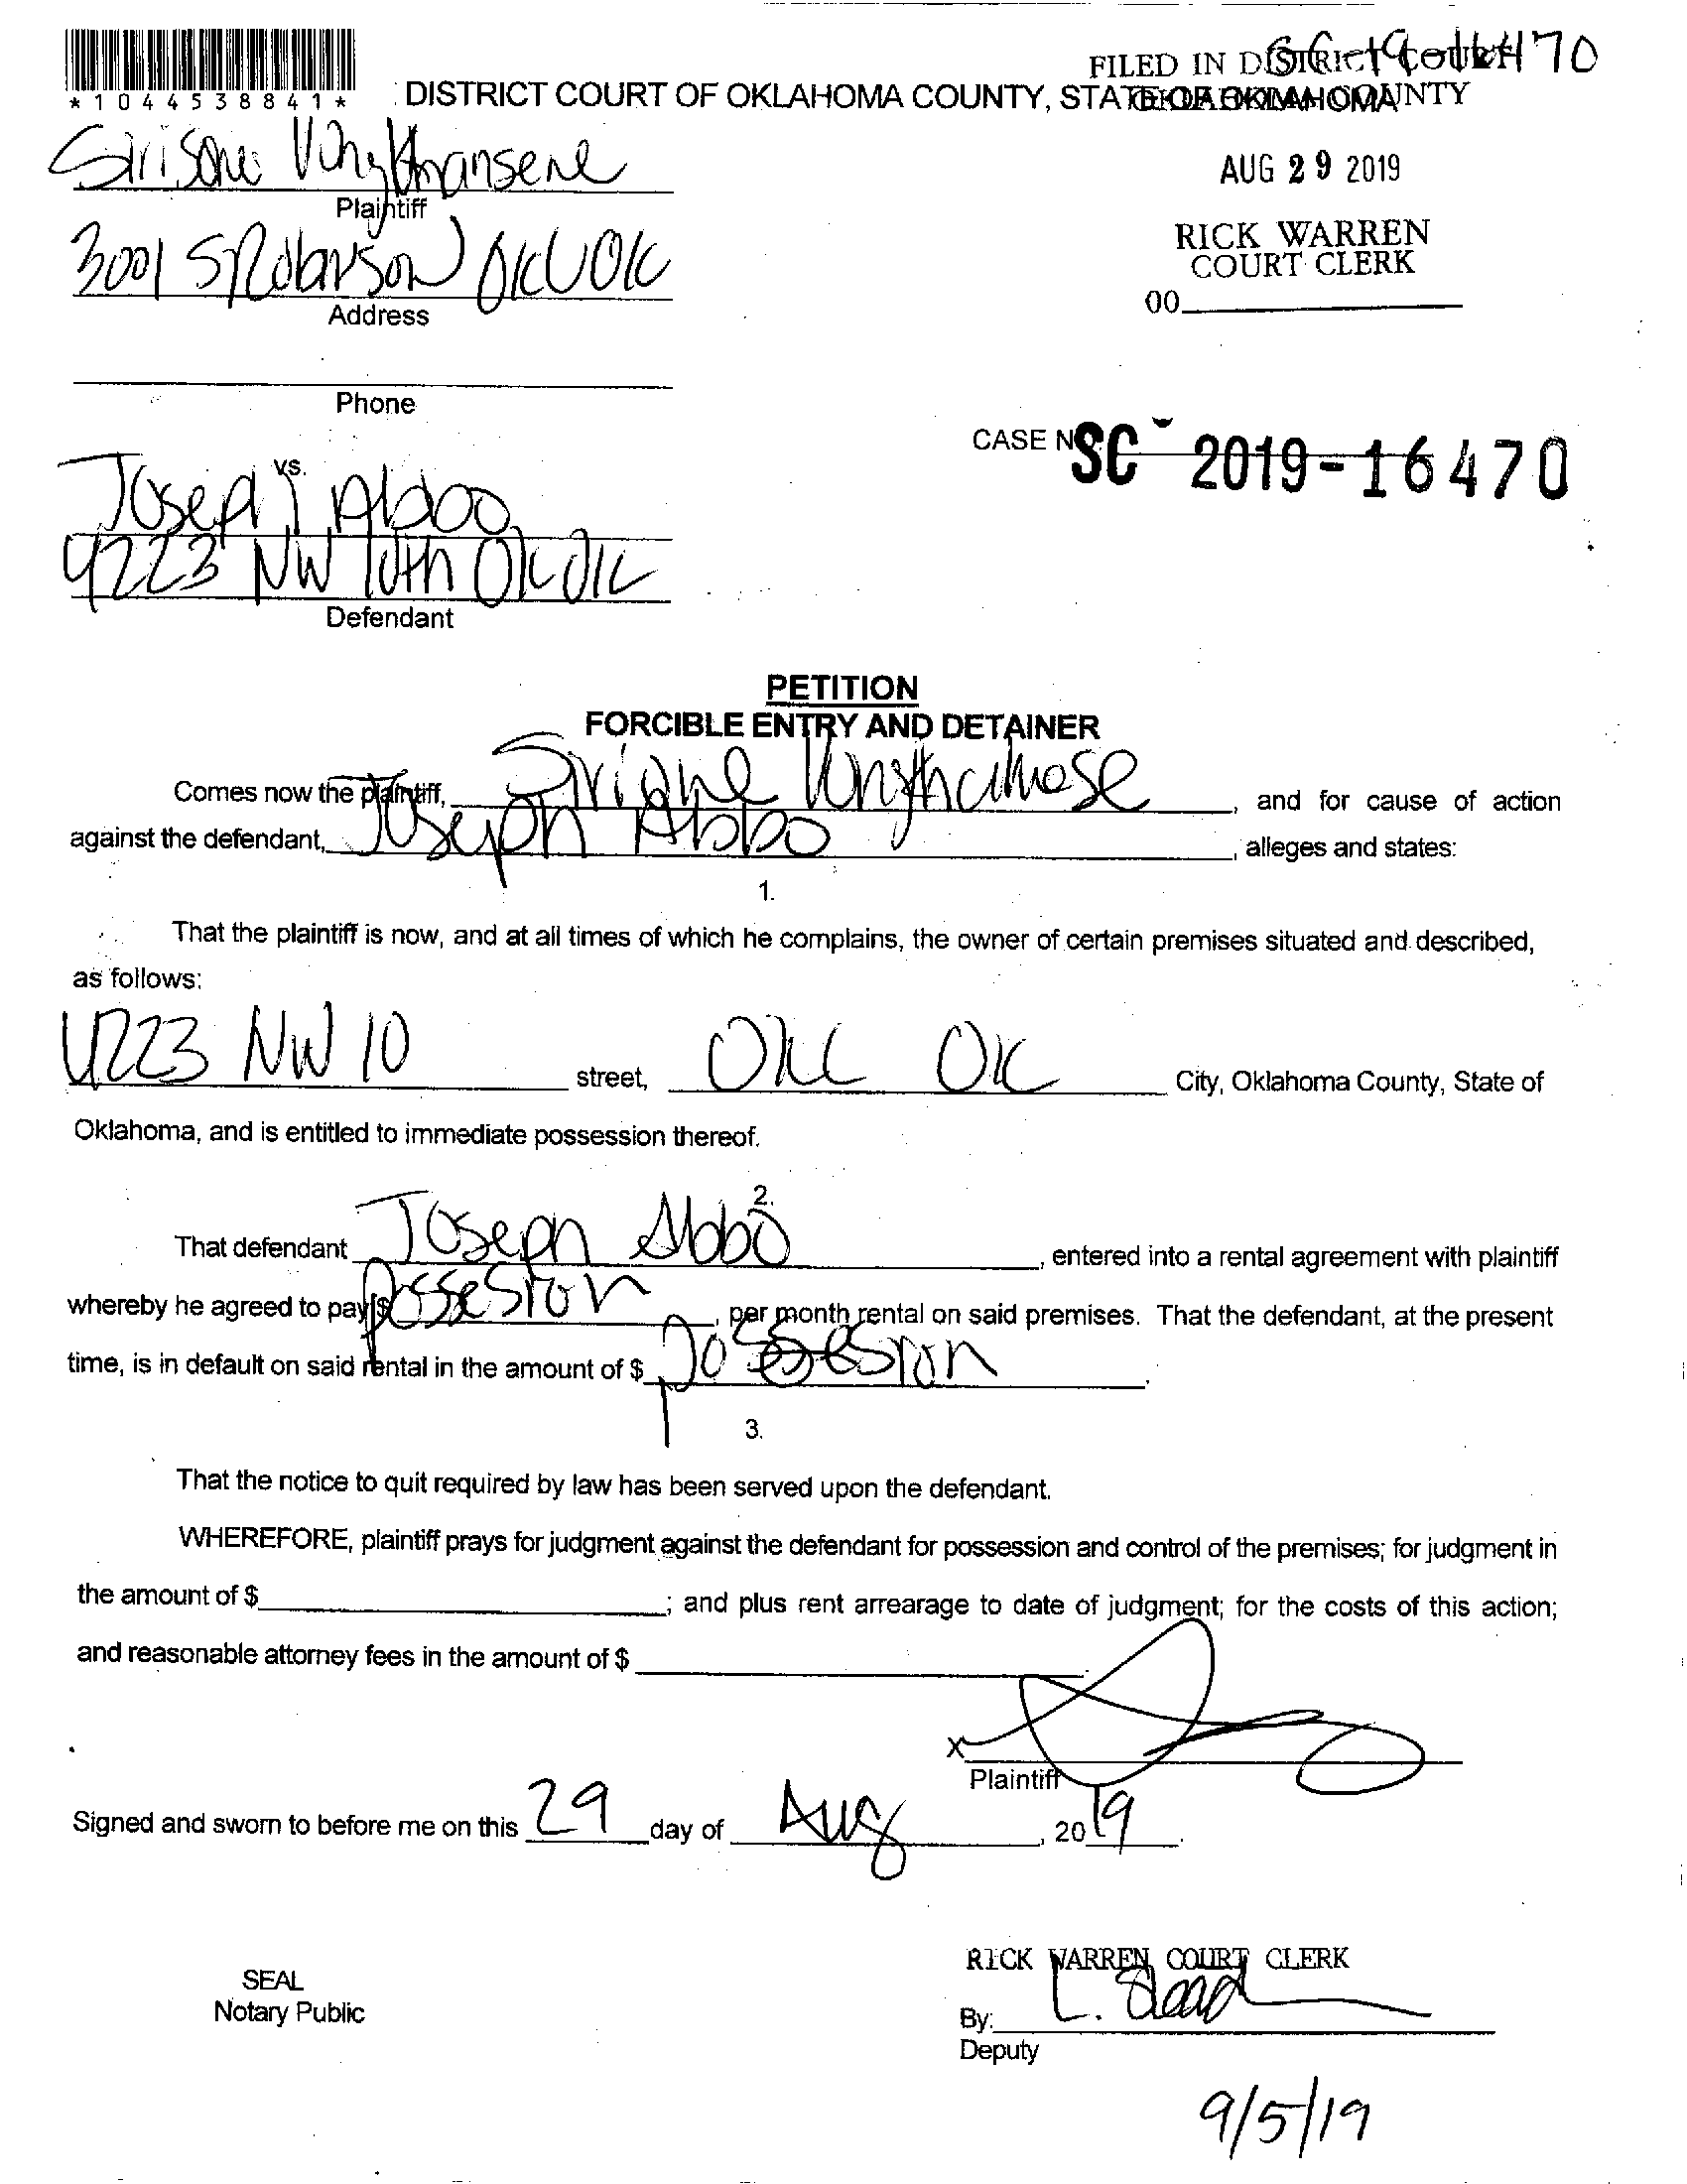 *1044538841*
FILED IN DISTRICT COURT
OKLAHOMA COUNTY
DISTRICT COURT OF OKLAHOMA COUNTY, STATE OF OKLAHOMA
AUG 29 2019
Plaintiff
RICK WARREN
COURT CLERK
3001 S OKC OK
00
Address
Phone
CASE NO. SC-2019-16470
vs.
Joseph Abbo
4223 NW 10th OKC OK
Defendant
PETITION
FORCIBLE ENTRY AND DETAINER
Comes now the plaintiff, , and for cause of action
against the defendant, Joseph Abbo , alleges and states:
1.
That the plaintiff is now, and at all times of which he complains, the owner of certain premises situated and described,
as follows:
4223 NW 10 street, OKC OK City, Oklahoma County, State of
Oklahoma, and is entitled to immediate possession thereof.
2.
That defendant Joseph Abbo , entered into a rental agreement with plaintiff
whereby he agreed to pay $ possesion , per month rental on said premises. That the defendant, at the present
time, is in default on said rental in the amount of $ possesion .
3.
That the notice to quit required by law has been served upon the defendant.
WHEREFORE, plaintiff prays for judgment against the defendant for possession and control of the premises; for judgment in
the amount of $ ; and plus rent arrearage to date of judgment; for the costs of this action;
and reasonable attorney fees in the amount of $ .
X
Plaintiff
Signed and sworn to before me on this 29 day of Aug , 2019 .
RICK WARREN, COURT CLERK
SEAL
Notary Public
By:
Deputy
9/5/19